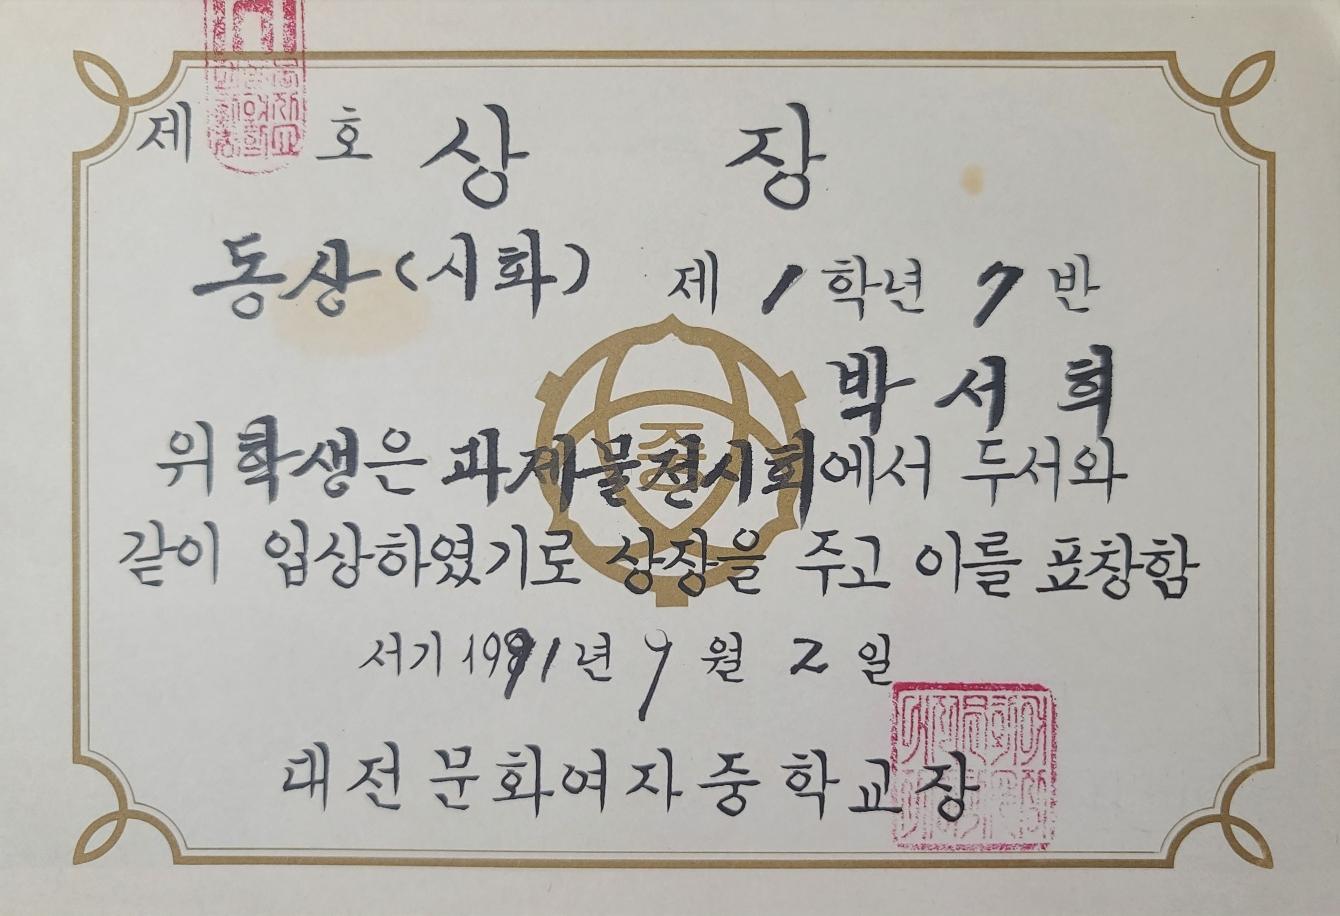 제 호 상 장
동상(시화) 제 1 학년 7 반
박 서 희
위 학생은 과제물전시회에서 두서와
같이 입상하였기로 상장을 주고 이를 표창함
서기 1991년 9 월 2 일
대전문화여자중학교장
중